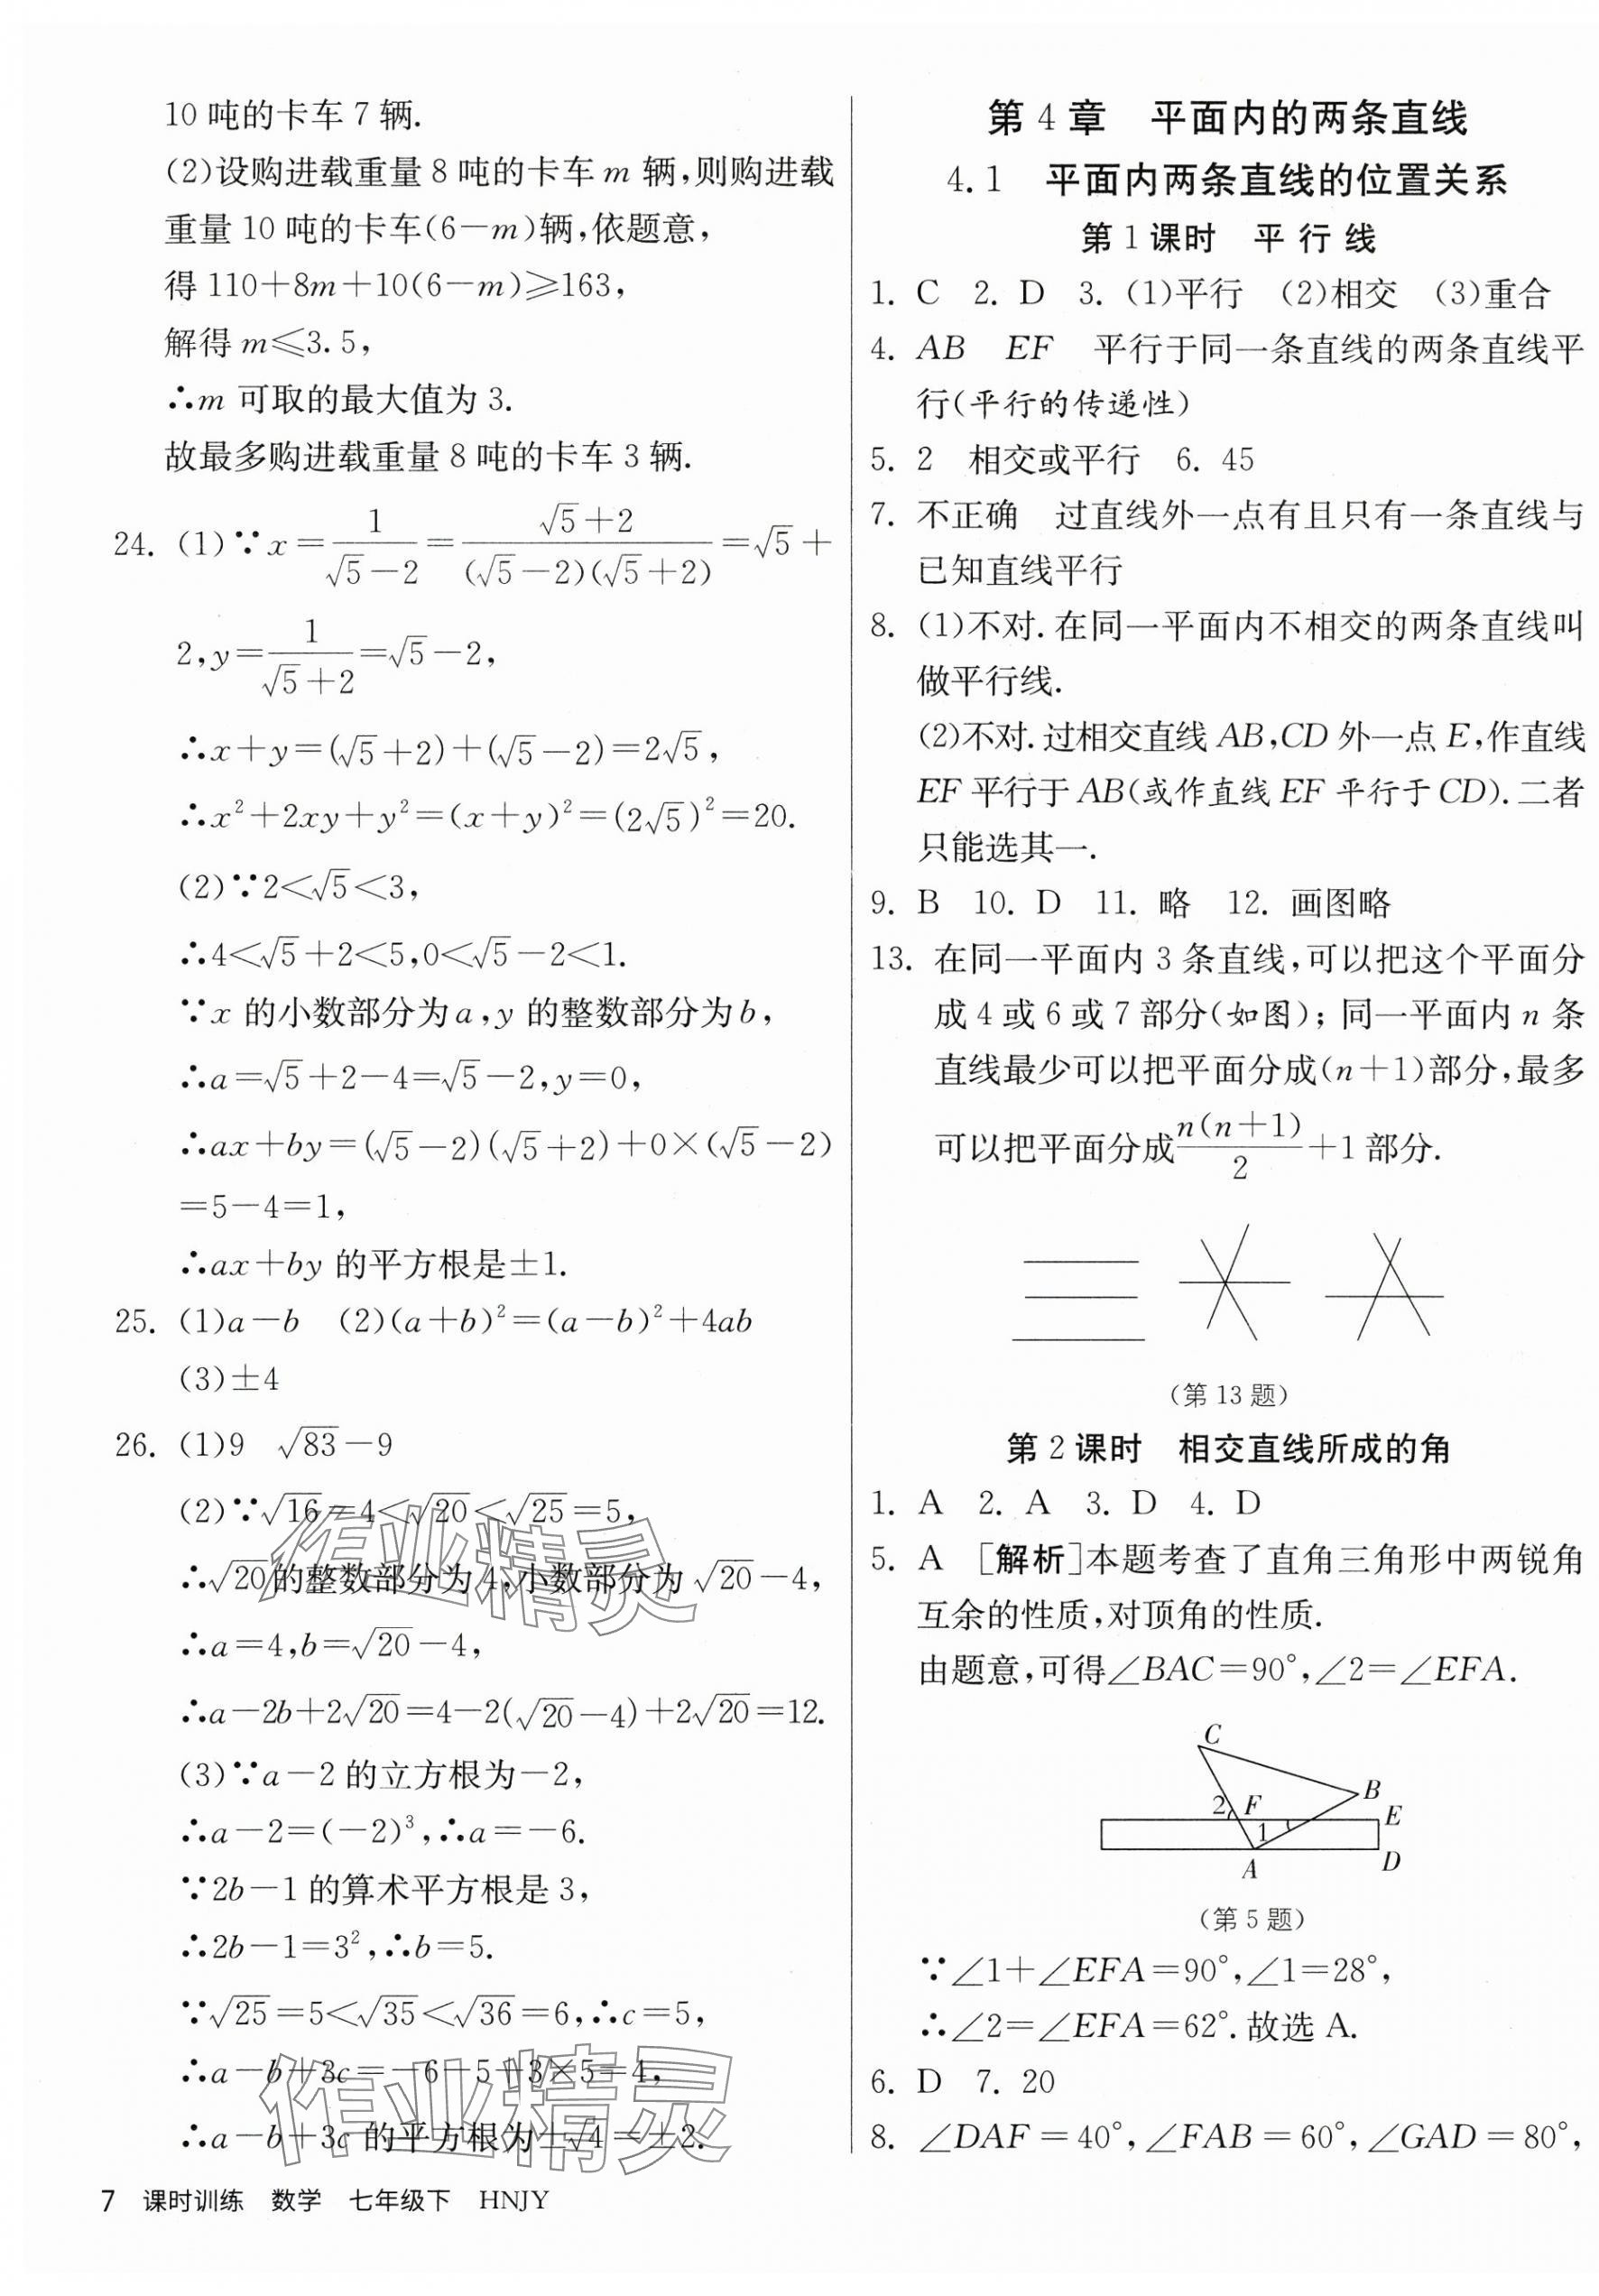 10 吨的卡车 7 辆.
(2)设购进载重量 8 吨的卡车 m 辆,则购进载
重量 10 吨的卡车(6－m)辆,依题意,
得 110＋8m＋10(6－m)≥163,
解得 m≤3.5,
∴m 可取的最大值为 3.
故最多购进载重量 8 吨的卡车 3 辆.
24. (1)∵x＝1/(√5－2)＝(√5＋2)/((√5－2)(√5＋2))＝√5＋
2,y＝1/(√5＋2)＝√5－2,
∴x＋y＝(√5＋2)＋(√5－2)＝2√5,
∴x²＋2xy＋y²＝(x＋y)²＝(2√5)²＝20.
(2)∵2＜√5＜3,
∴4＜√5＋2＜5,0＜√5－2＜1.
∵x 的小数部分为 a,y 的整数部分为 b,
∴a＝√5＋2－4＝√5－2,y＝0,
∴ax＋by＝(√5－2)(√5＋2)＋0×(√5－2)
＝5－4＝1,
∴ax＋by 的平方根是±1.
25. (1)a－b (2)(a＋b)²＝(a－b)²＋4ab
(3)±4
26. (1)9 √83－9
(2)∵√16＝4＜√20＜√25＝5,
∴√20的整数部分为 4,小数部分为 √20－4,
∴a＝4,b＝√20－4,
∴a－2b＋2√20＝4－2(√20－4)＋2√20＝12.
(3)∵a－2 的立方根为－2,
∴a－2＝(－2)³,∴a＝－6.
∵2b－1 的算术平方根是 3,
∴2b－1＝3²,∴b＝5.
∵√25＝5＜√35＜√36＝6,∴c＝5,
∴a－b＋3c＝－6－5＋3×5＝4,
∴a－b＋3c 的平方根为±√4＝±2.
作业精灵
作业精灵
7 课时训练 数学 七年级下 HNJY
第 4 章 平面内的两条直线
4.1 平面内两条直线的位置关系
第 1 课时 平 行 线
1. C 2. D 3. (1)平行 (2)相交 (3)重合
4. AB EF 平行于同一条直线的两条直线平
行(平行的传递性)
5. 2 相交或平行 6. 45
7. 不正确 过直线外一点有且只有一条直线与
已知直线平行
8. (1)不对.在同一平面内不相交的两条直线叫
做平行线.
(2)不对.过相交直线 AB,CD 外一点 E,作直线
EF 平行于 AB(或作直线 EF 平行于 CD).二者
只能选其一.
9. B 10. D 11. 略 12. 画图略
13. 在同一平面内 3 条直线,可以把这个平面分
成 4 或 6 或 7 部分(如图);同一平面内 n 条
直线最少可以把平面分成(n＋1)部分,最多
可以把平面分成n(n＋1)/2＋1 部分.
(第 13 题)
第 2 课时 相交直线所成的角
1. A 2. A 3. D 4. D
5. A [解析]本题考查了直角三角形中两锐角
互余的性质,对顶角的性质.
由题意,可得∠BAC＝90°,∠2＝∠EFA.
C
B
2 F E
1
A D
(第 5 题)
∵∠1＋∠EFA＝90°,∠1＝28°,
∴∠2＝∠EFA＝62°.故选 A.
6. D 7. 20
8. ∠DAF＝40°,∠FAB＝60°,∠GAD＝80°,